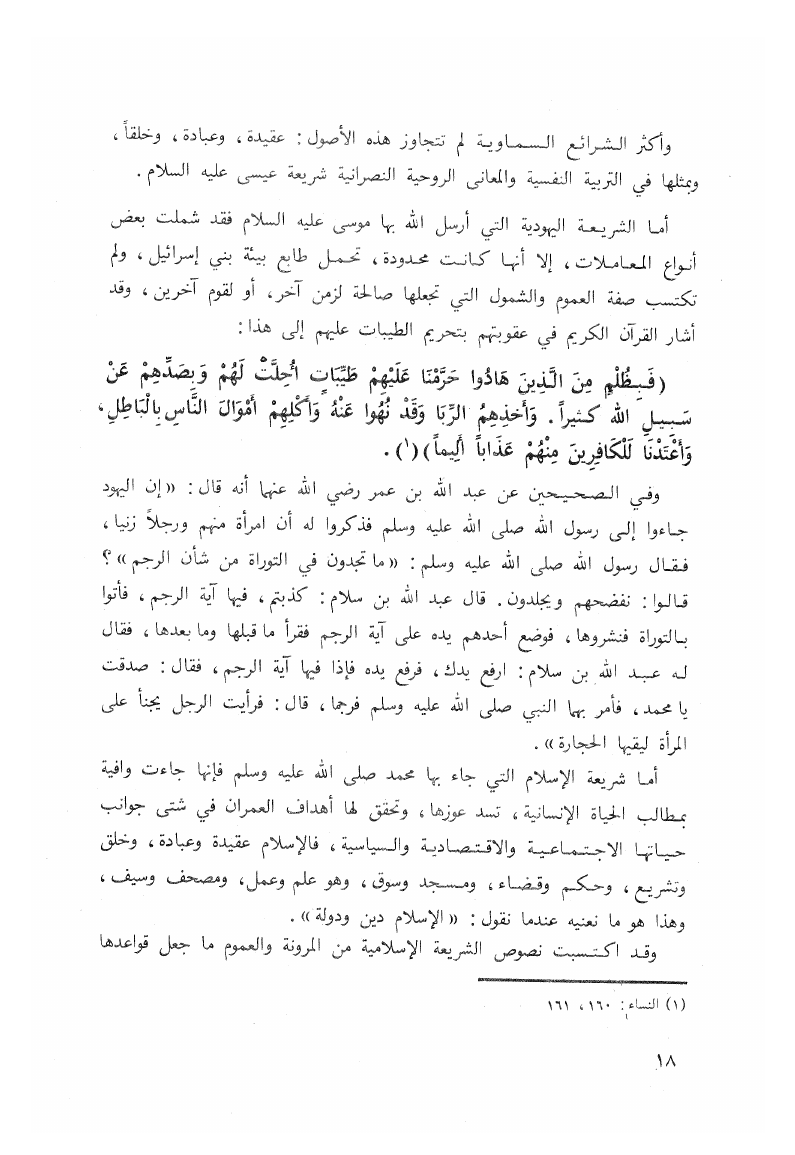 وأكثر الشرائع السماوية لم تتجاوز هذه الأصول : عقيدة ، وعبادة ، وخلقاً ،
ويمثلها في التربية النفسية والمعانى الروحية النصرانية شريعة عيسى عليه السلام .
أما الشريعة اليهودية التي أرسل الله بها موسى عليه السلام فقد شملت بعض
أنواع المعاملات ، إلا أنها كانت محدودة ، تحمل طابع بيئة بني إسرائيل ، ولم
تكتسب صفة العموم والشمول التي تجعلها صالحة لزمن آخر، أو لقوم آخرين ، وقد
أشار القرآن الكريم في عقوبتهم بتحريم الطيبات عليهم إلى هذا :
( فَبِظُلْمٍ مِنَ الَّذِينَ هَادُوا حَرَّمْنَا عَلَيْهِمْ طَيِّبَاتٍ أُحِلَّتْ لَهُمْ وَبِصَدِّهِمْ عَنْ
سَبِيلِ الله كثيراً . وَأَخذِهِمُ الرِّبَا وَقَدْ نُهُوا عَنْهُ وَأَكْلِهِمْ أَمْوَالَ النَّاسِ بِالْبَاطِلِ ،
وَأَعْتَدْنَا لِلْكَافِرِينَ مِنْهُمْ عَذَاباً أَلِيماً ) (١) .
وفي الصحيحين عن عبد الله بن عمر رضي الله عنهما أنه قال : « إن اليهود
جاءوا إلى رسول الله صلى الله عليه وسلم فذكروا له أن امرأة منهم ورجلاً زنيا ،
فقال رسول الله صلى الله عليه وسلم : « ما تجدون في التوراة من شأن الرجم » ؟
قالوا : نفضحهم ويجلدون . قال عبد الله بن سلام : كذبتم ، فيها آية الرجم ، فأتوا
بالتوراة فنشروها ، فوضع أحدهم يده على آية الرجم فقرأ ما قبلها وما بعدها ، فقال
له عبد الله بن سلام : ارفع يدك ، فرفع يده فإذا فيها آية الرجم ، فقال : صدقت
يا محمد ، فأمر بهما النبي صلى الله عليه وسلم فرجما ، قال : فرأيت الرجل يجنأ على
المرأة ليقيها الحجارة » .
أما شريعة الإسلام التي جاء بها محمد صلى الله عليه وسلم فإنها جاءت وافية
بمطالب الحياة الإنسانية ، تسد عوزها ، وتحقق لها أهداف العمران في شتى جوانب
حياتها الاجتماعية والاقتصادية والسياسية ، فالإسلام عقيدة وعبادة ، وخلق
وتشريع ، وحكم وقضاء ، ومسجد وسوق ، وهو علم وعمل، ومصحف وسيف ،
وهذا هو ما نعنيه عندما نقول : « الإسلام دين ودولة » .
وقد اكتسبت نصوص الشريعة الإسلامية من المرونة والعموم ما جعل قواعدها
(١) النساء : ١٦٠ ، ١٦١
١٨